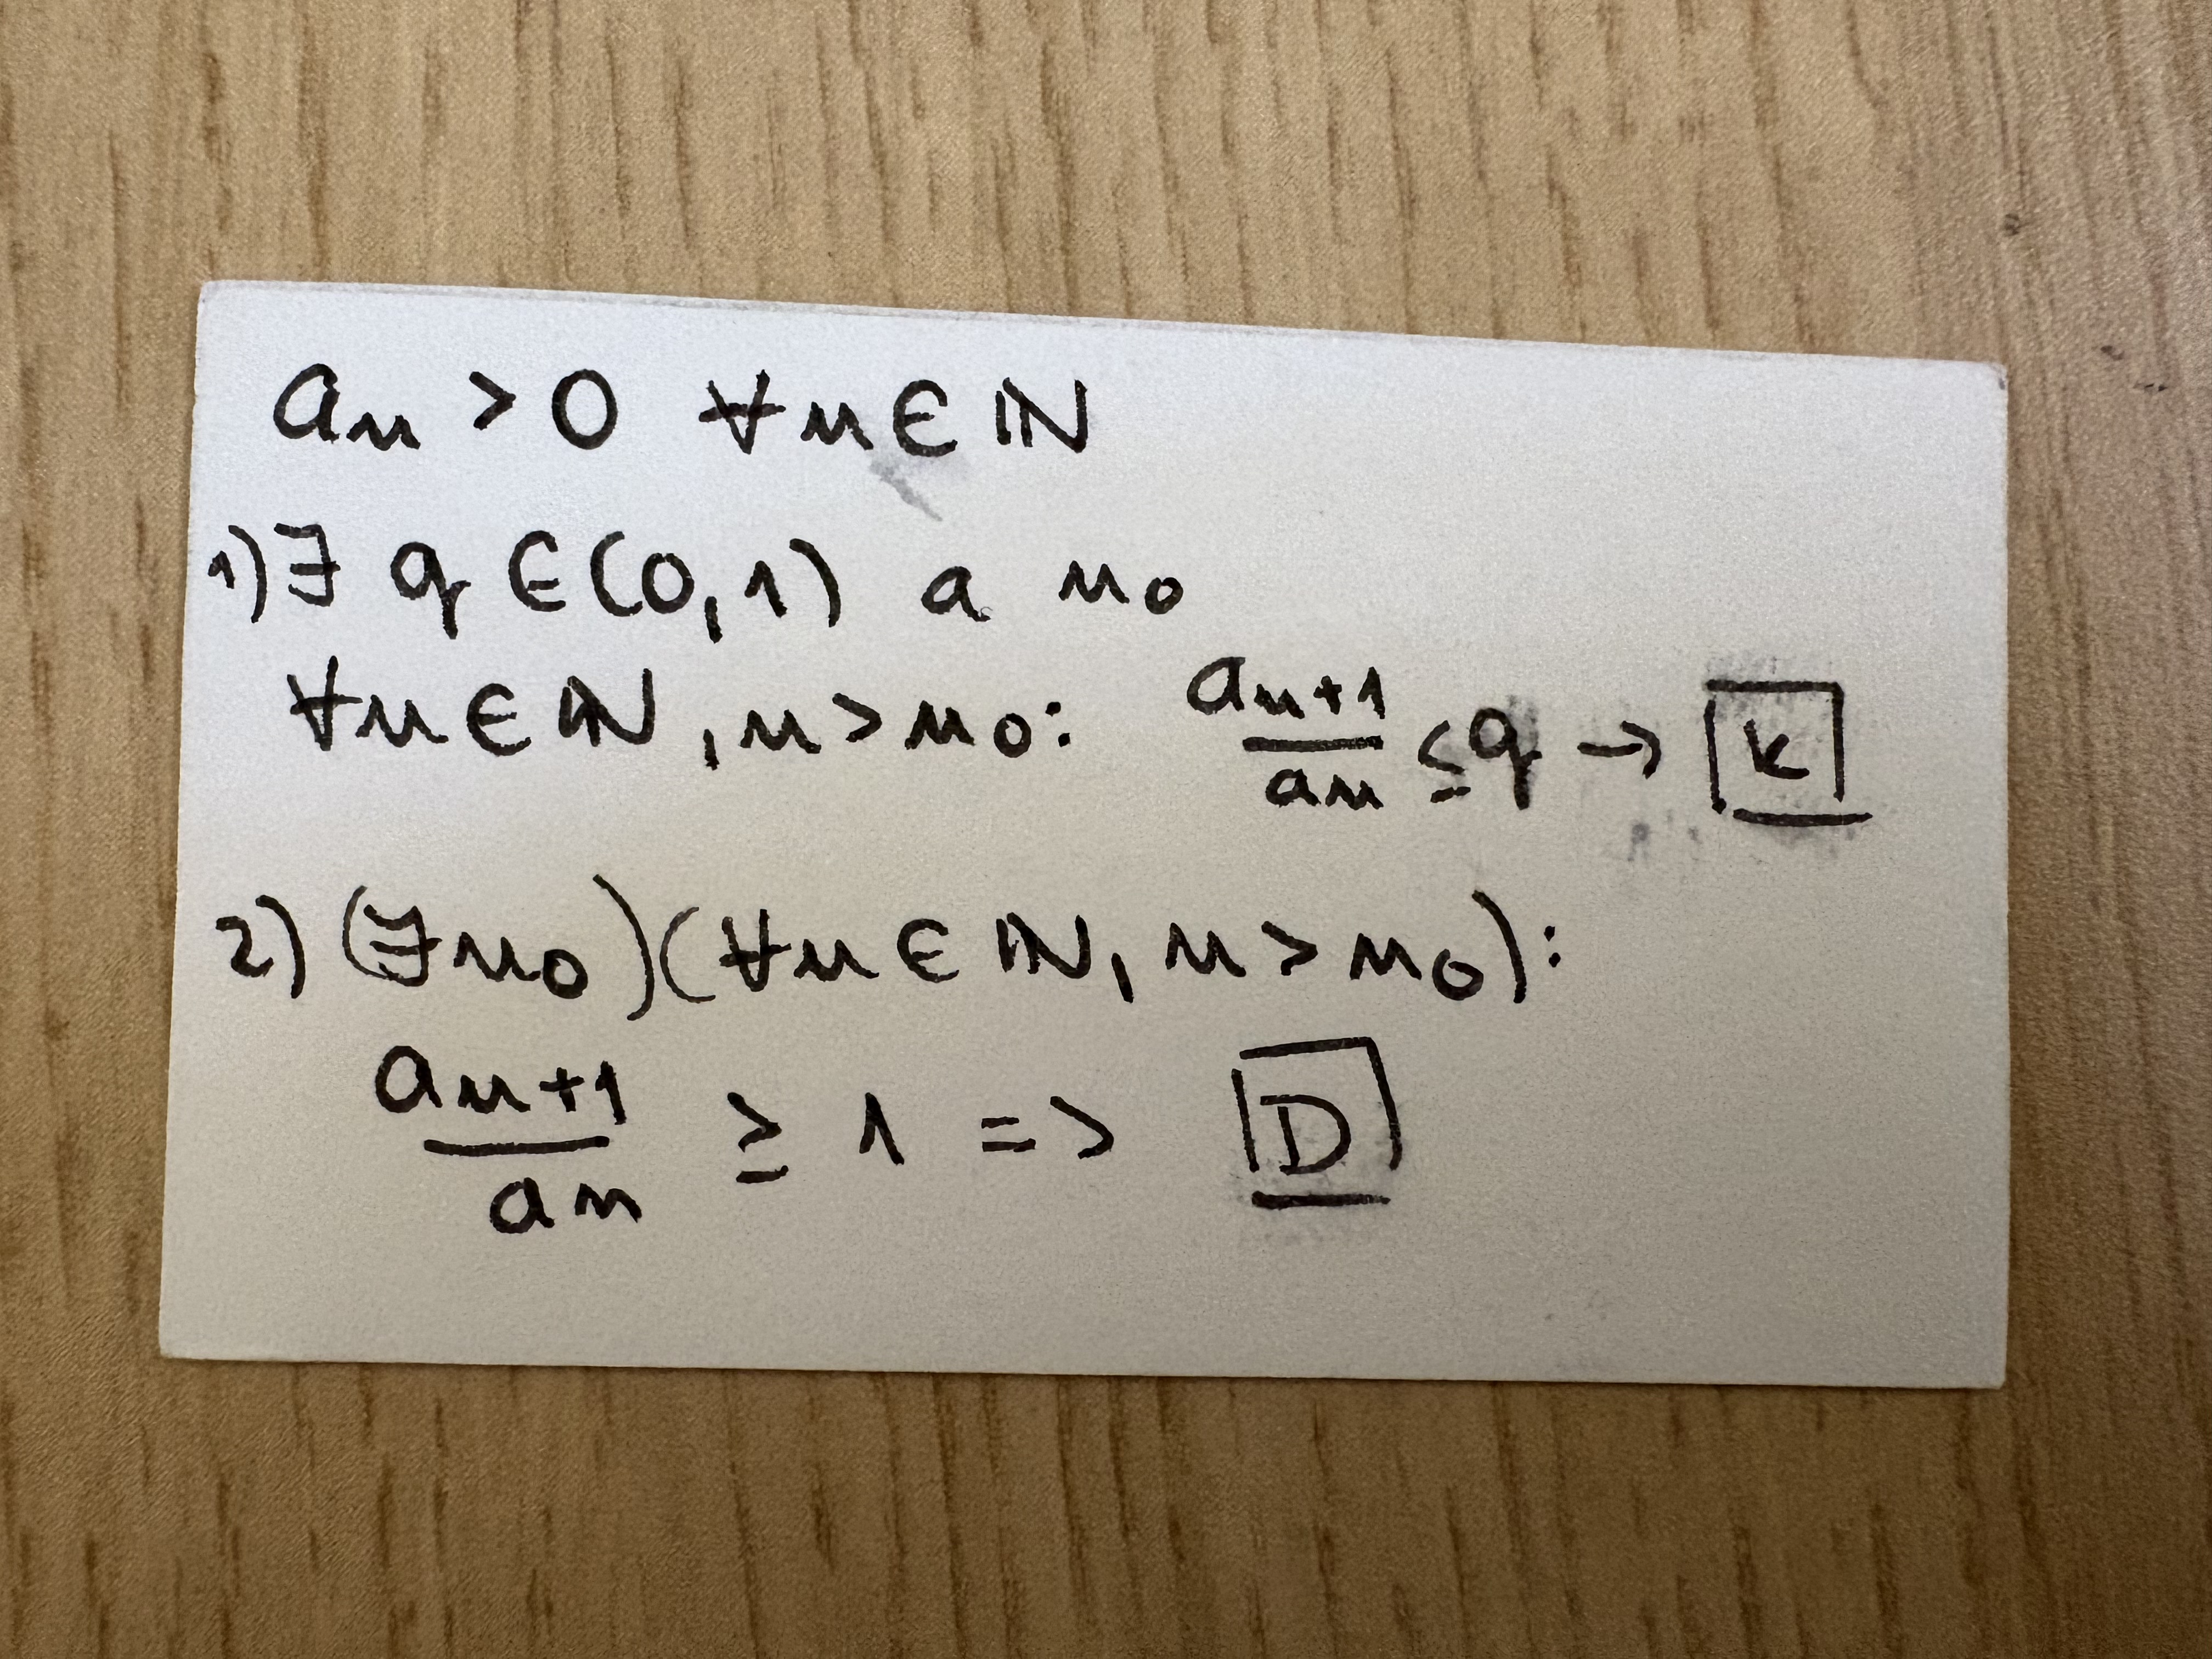 aₙ > 0 ∀n∈ℕ
1) ∃ q ∈(0,1) a n₀
∀n∈ℕ, n>n₀: aₙ₊₁/aₙ ≤ q → K
2) (∃n₀)(∀n∈ℕ, n>n₀):
aₙ₊₁/aₙ ≥ 1 => D